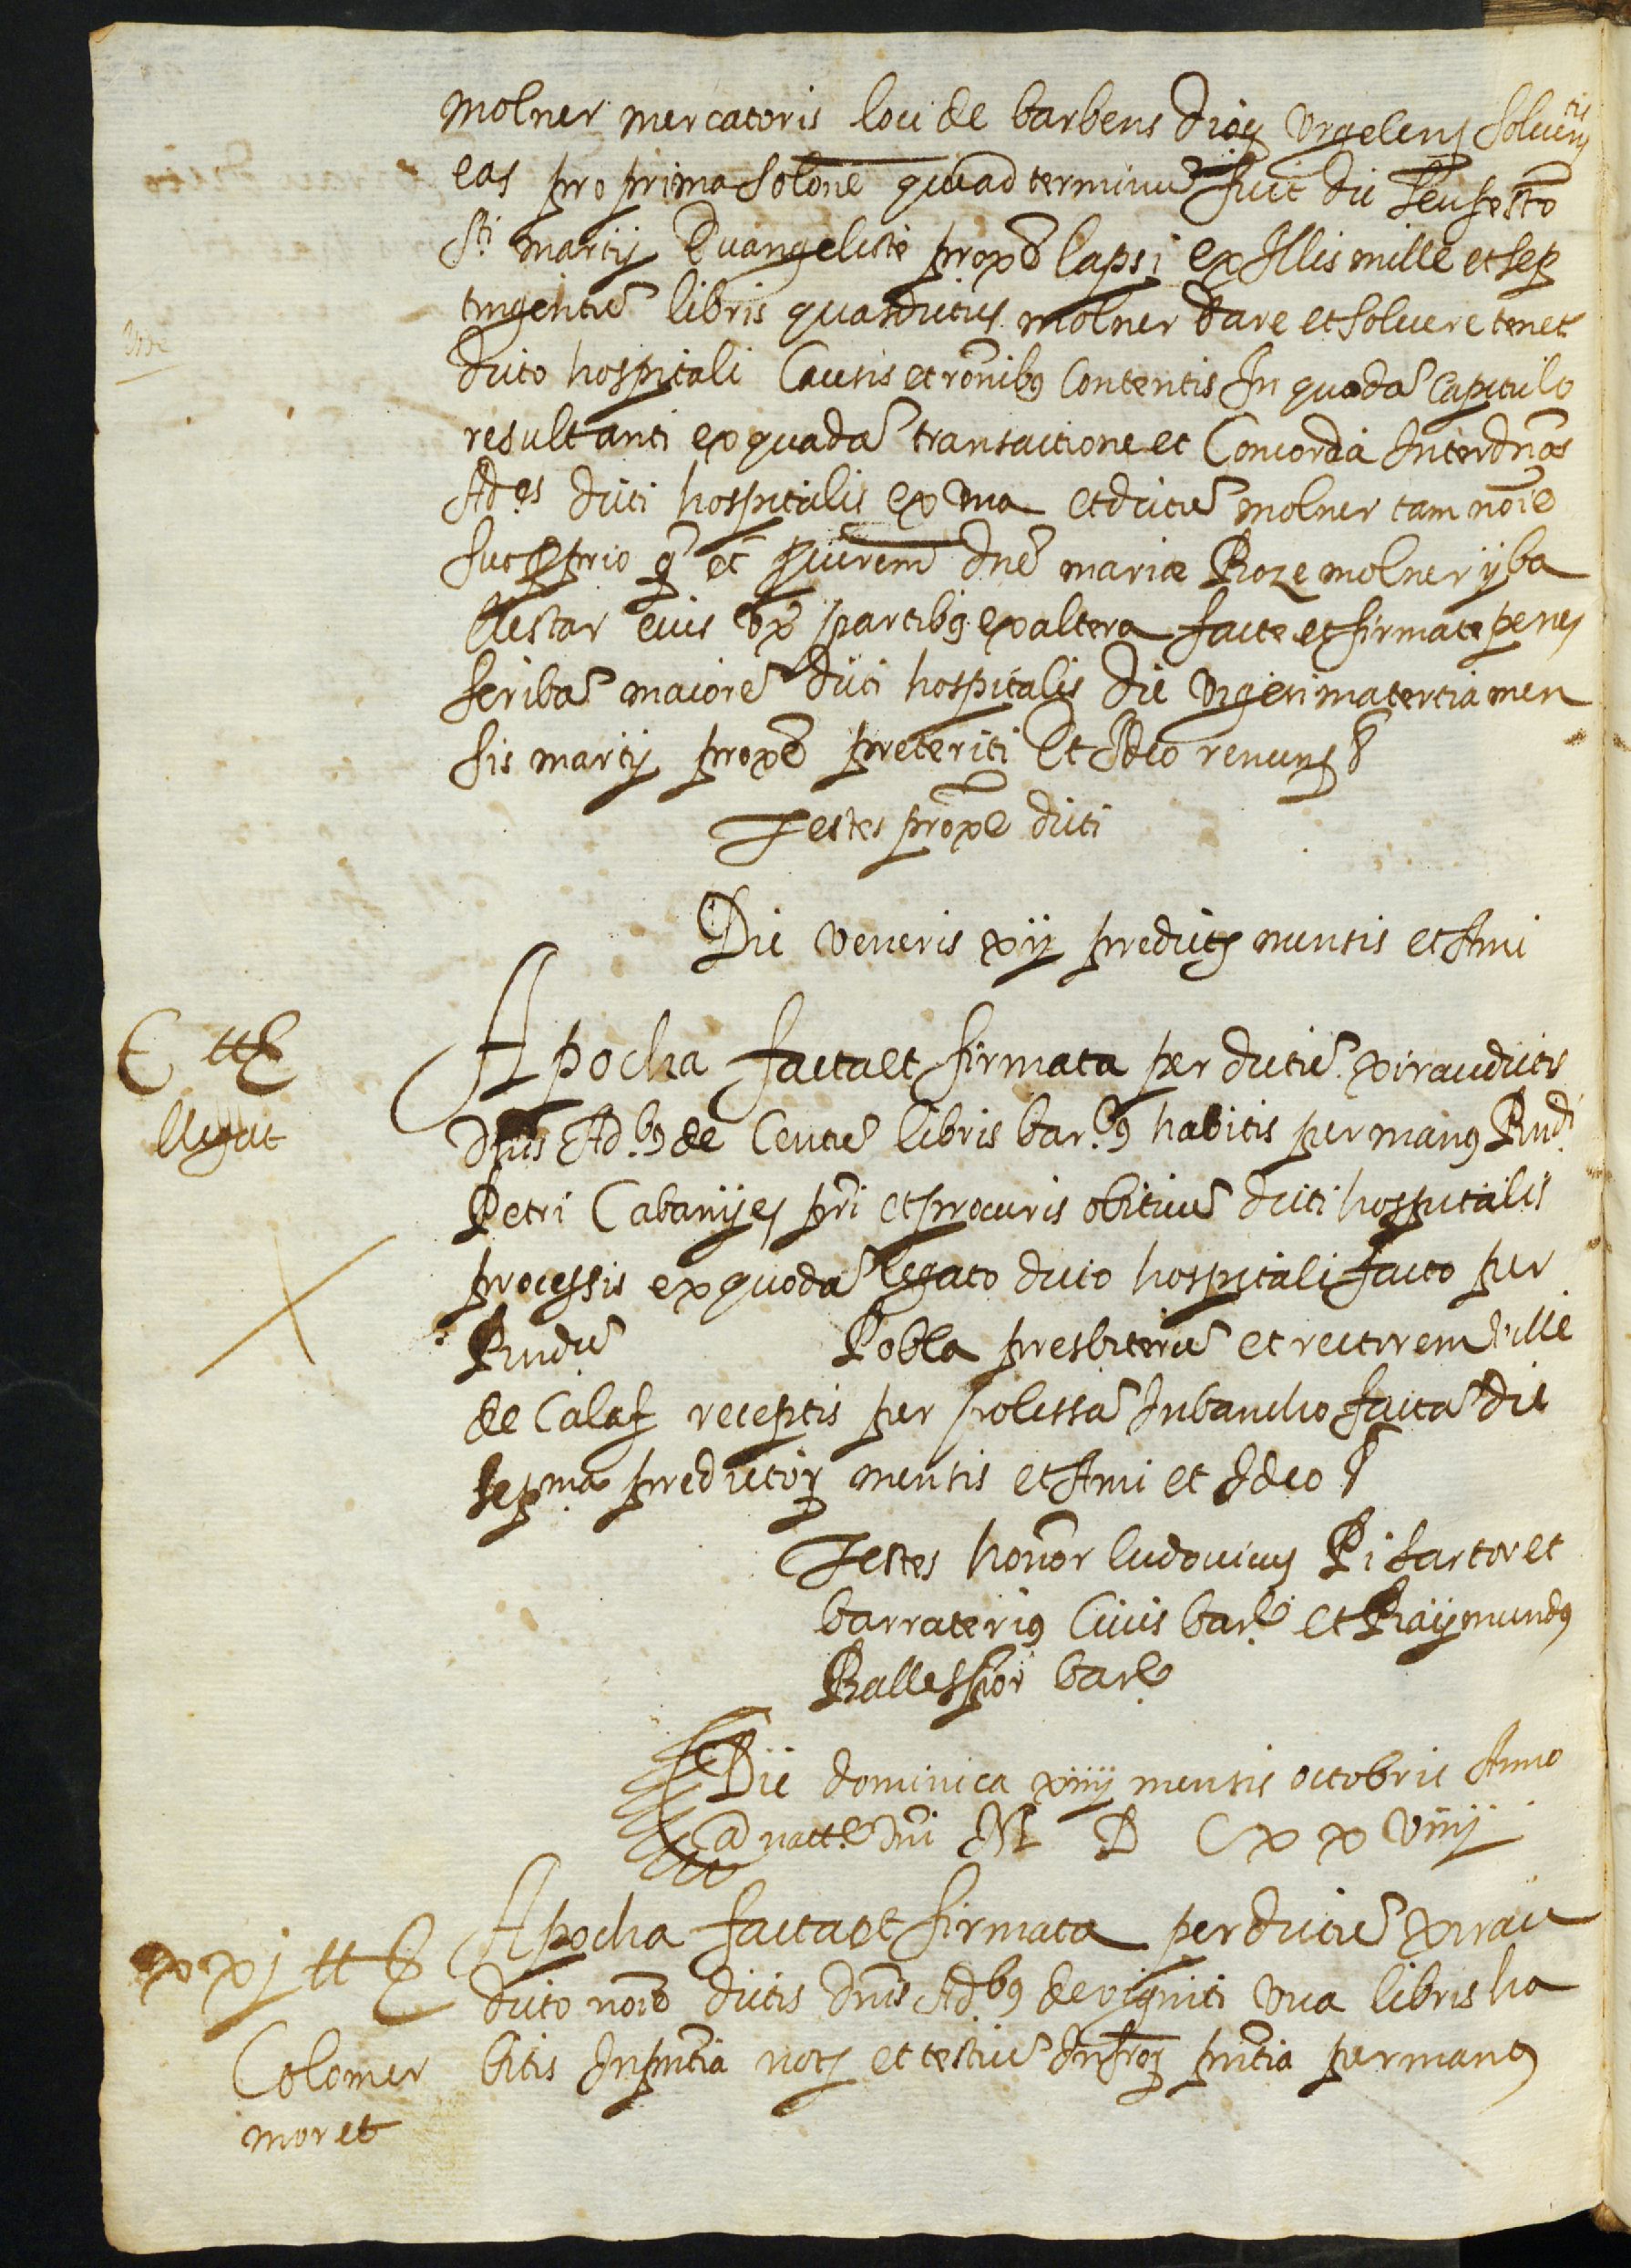 molner mercatoris loci de barbens dioç Vrgelens soluen tis
eas pro prima solone qua ad terminu fuit die seu festo
Sti martij Euangeliste proxe lapsi ex Illis mille et sep
tingentu libris quas dictus molner dare et soluere tenet
dicto hospitali Causis et ronibus Contentis In quoda Capitulo
resultanti ex quada transactione et Concordia Inter dnos
Ades dicti hospitalis ex vna et dictu molner tam noie
suo proprio q et dne marie Roze molner y ba
llestar eius vx partibus ex altera facte et firmate penes
scriba maiore dicti hospitalis die vigesima tertia men
sis martij proxe preteriti Et Ideo renuns &
Testes proxe dicti
Die veneris xij predictis mensis et Anni
C ttE
llegat
Apocha facta et firmata per dictu xirau dictis
dnis Adbus de Centu libris barbus habitis per manus Rndi
Petri Cabanyes pri et procuris obituu dicti hospitalis
processis ex quoda legato dicto hospitali facto per
Rndu Pobla presbiteru et rectorem ville
de Calaf receptis per polissa In bancho facta die
sepma predictor mensis et Anni et Ideo &
Testes honor ludouicus Pi sartor et
barraterius Ciuis bar et Raymundus
Ballester bar
Die dominica xiiij mensis octobris Anno
a natte Dni M D C x x viiij
xxj tt E
Colomer
moret
Apocha facta et firmata per dictu xirau
dicto noie dictis dnis Adbus de viginti vna libris ha
bitis In pntia notj et testiu Infroz pntia per manus